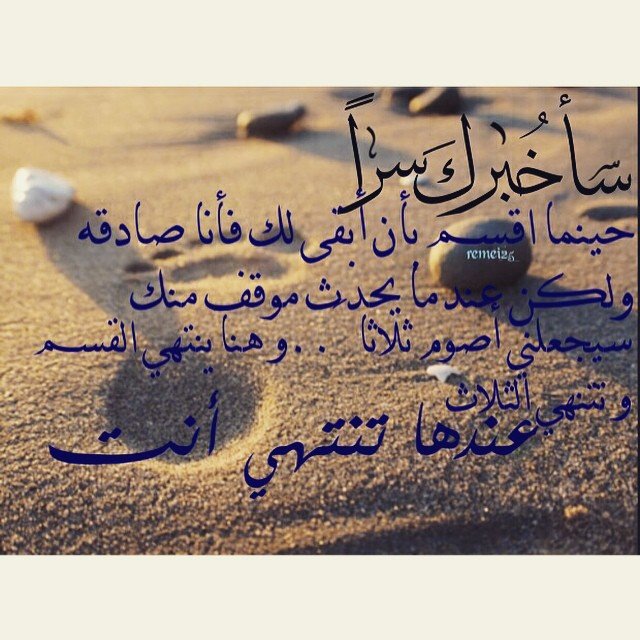 سأخبرك سراً
حينما اقسم بأن أبقى لك فأنا صادقه
remei25
ولكن عندما يحدث موقف منك
سيجعلني أصوم ثلاثا . . وهنا ينتهي القسم
وتنتهي الثلاث
عندها تنتهي أنت